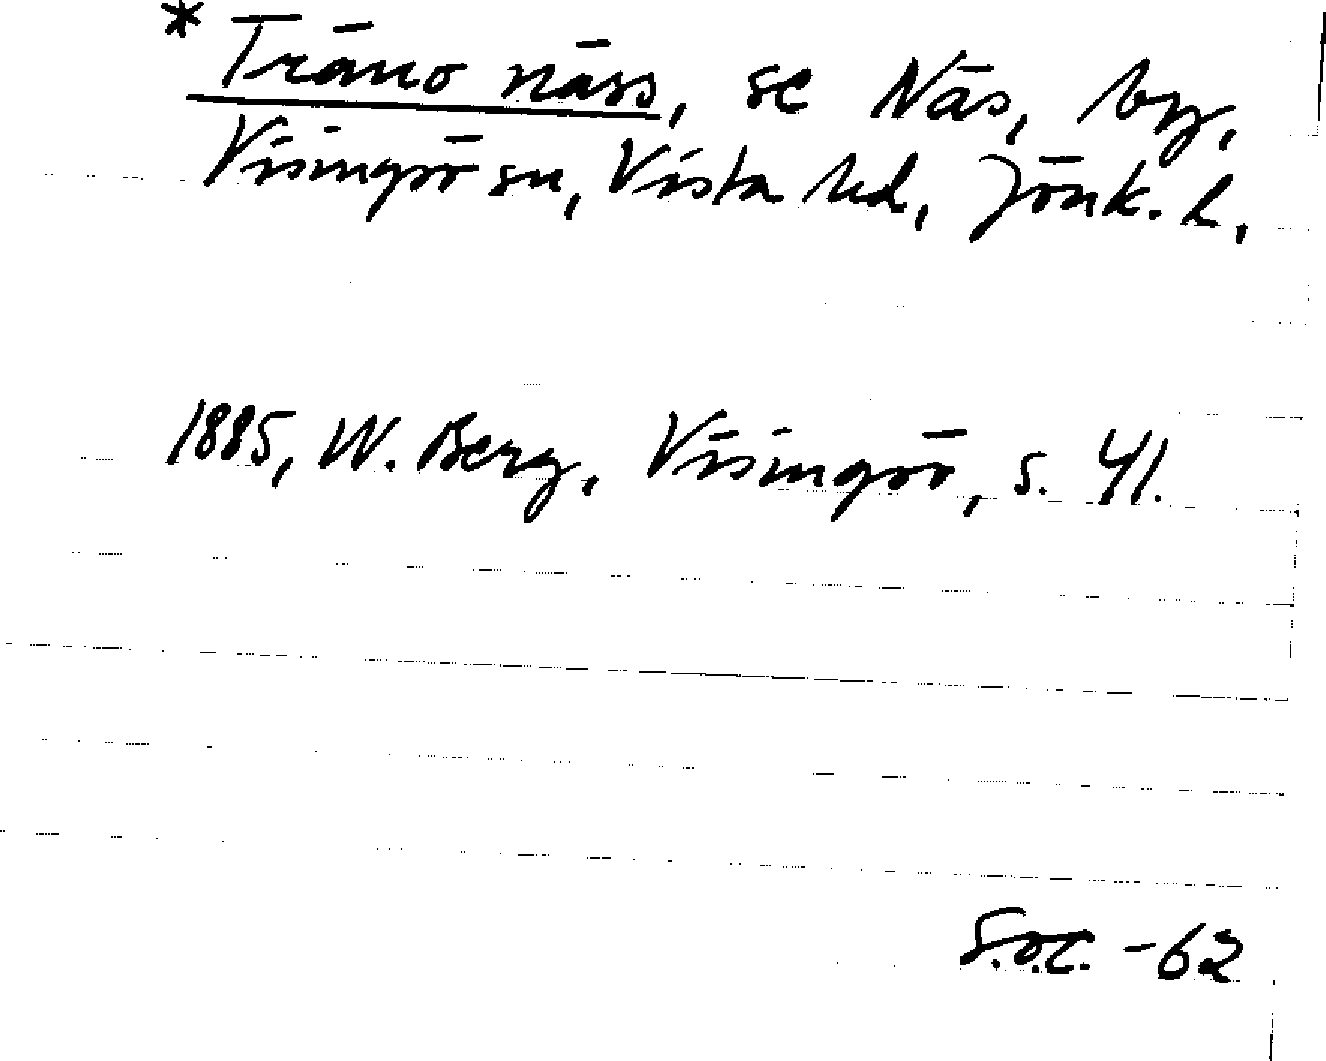 * Träno näss, se Näs, by,
Visingsö sn, Vista hd, Jönk. l,
1885, W. Berg, Visingsö, s. 41.
S.O.C. -62